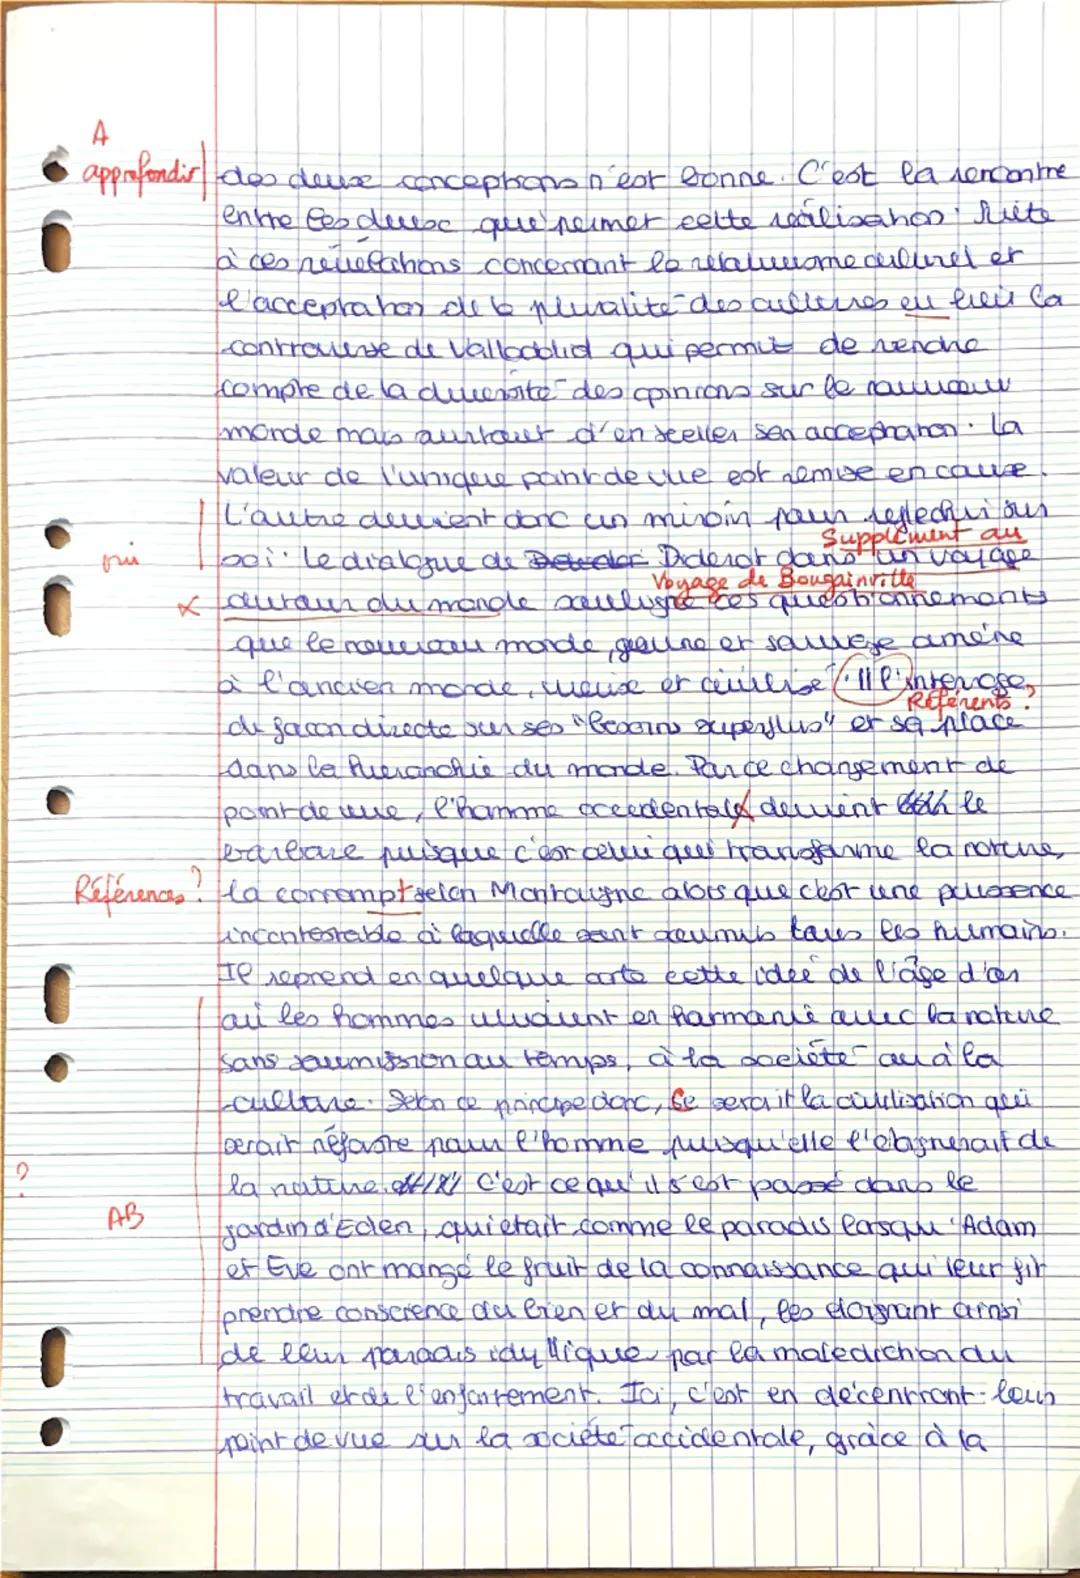 A
approfondir
des deux conceptions n'est bonne. C'est la rencontre
entre les deux que permet cette réalisation. Suite
à ces révélations concernant le relativisme culturel et
l'acceptation de la pluralité des cultures eu lieu la
controverse de Valladolid qui permit de rendre
compte de la diversité des opinions sur le nouveau
monde mais surtout d'en sceller son acceptation. La
valeur de l'unique point de vue est remise en cause.
L'autre devient donc un miroir pour réfléchir sur
Supplément au
oui
soi. Le dialogue de Diderot dans un voyage
Voyage de Bougainville
autour du monde souligne ces questionnements
que le nouveau monde, jeune et sauvage amène
à l'ancien monde, vieux et civilisé. Il l'interroge,
Référents ?
de facon directe sur ses "besoins superflus" et sa place
dans la hierarchie du monde. Par ce changement de
point de vue, l'homme occidentale devient le
barbare puisque c'est celui qui transforme la nature,
Références ?
la corrompt selon Montaigne alors que c'est une puissance
incontestable à laquelle sont soumis tous les humains.
Il reprend en quelque sorte cette idée de l'âge d'or
où les hommes vivaient en harmonie avec la nature
sans soumission au temps, à la société ou à la
culture. Selon ce principe donc, ce serait la civilisation qui
serait néfaste pour l'homme puisqu'elle l'éloignerait de
?
la nature. C'est ce qu'il s'est passé dans le
AB
jardin d'Eden, qui était comme le paradis lorsqu'Adam
et Eve ont mangé le fruit de la connaissance qui leur fit
prendre conscience du bien et du mal, les éloignant ainsi
de leur paradis idyllique par la malediction du
travail et de l'enfantement. Ici, c'est en décentrant leurs
point de vue sur la société occidentale, grâce à la